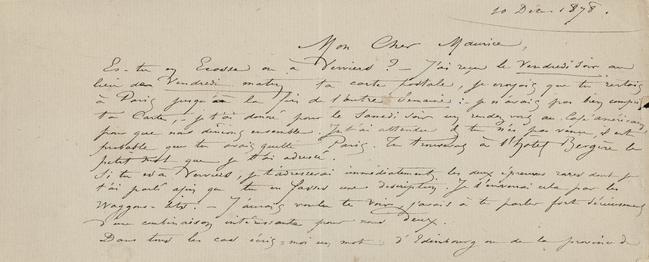 10 Déc. 1878.
Mon Cher Maurice,
Es-tu en Ecosse ou à Verviers ? - J'ai reçu le Vendredi soir au
lieu du Vendredi matin ta carte postale, je croyais que tu restais
à Paris jusqu'à la fin de l'autre semaine :- je n'avais pas bien compris
ta Carte, - je t'ai donné pour le Samedi soir un rendez vous au Café américain
pour que nous dinions ensemble. Je t'ai attendu & tu n'es pas venu, il est
probable que tu avais quitté Paris. Tu trouveras à l'hotel Bergère le
petit mot que je t'ai adressé.
Si tu es à Verviers, je t'adresserai immédiatement les deux épreuves rares dont je
t'ai parlé afin que tu en fasses une description. Je t'enverrai cela par les
Waggons-lits. - J'aurais voulu te voir, j'avais à te parler fort sérieusement
d'une combinaison intéressante pour nous deux.
Dans tous les cas écris-moi un mot d'Edinbourg ou de la province de